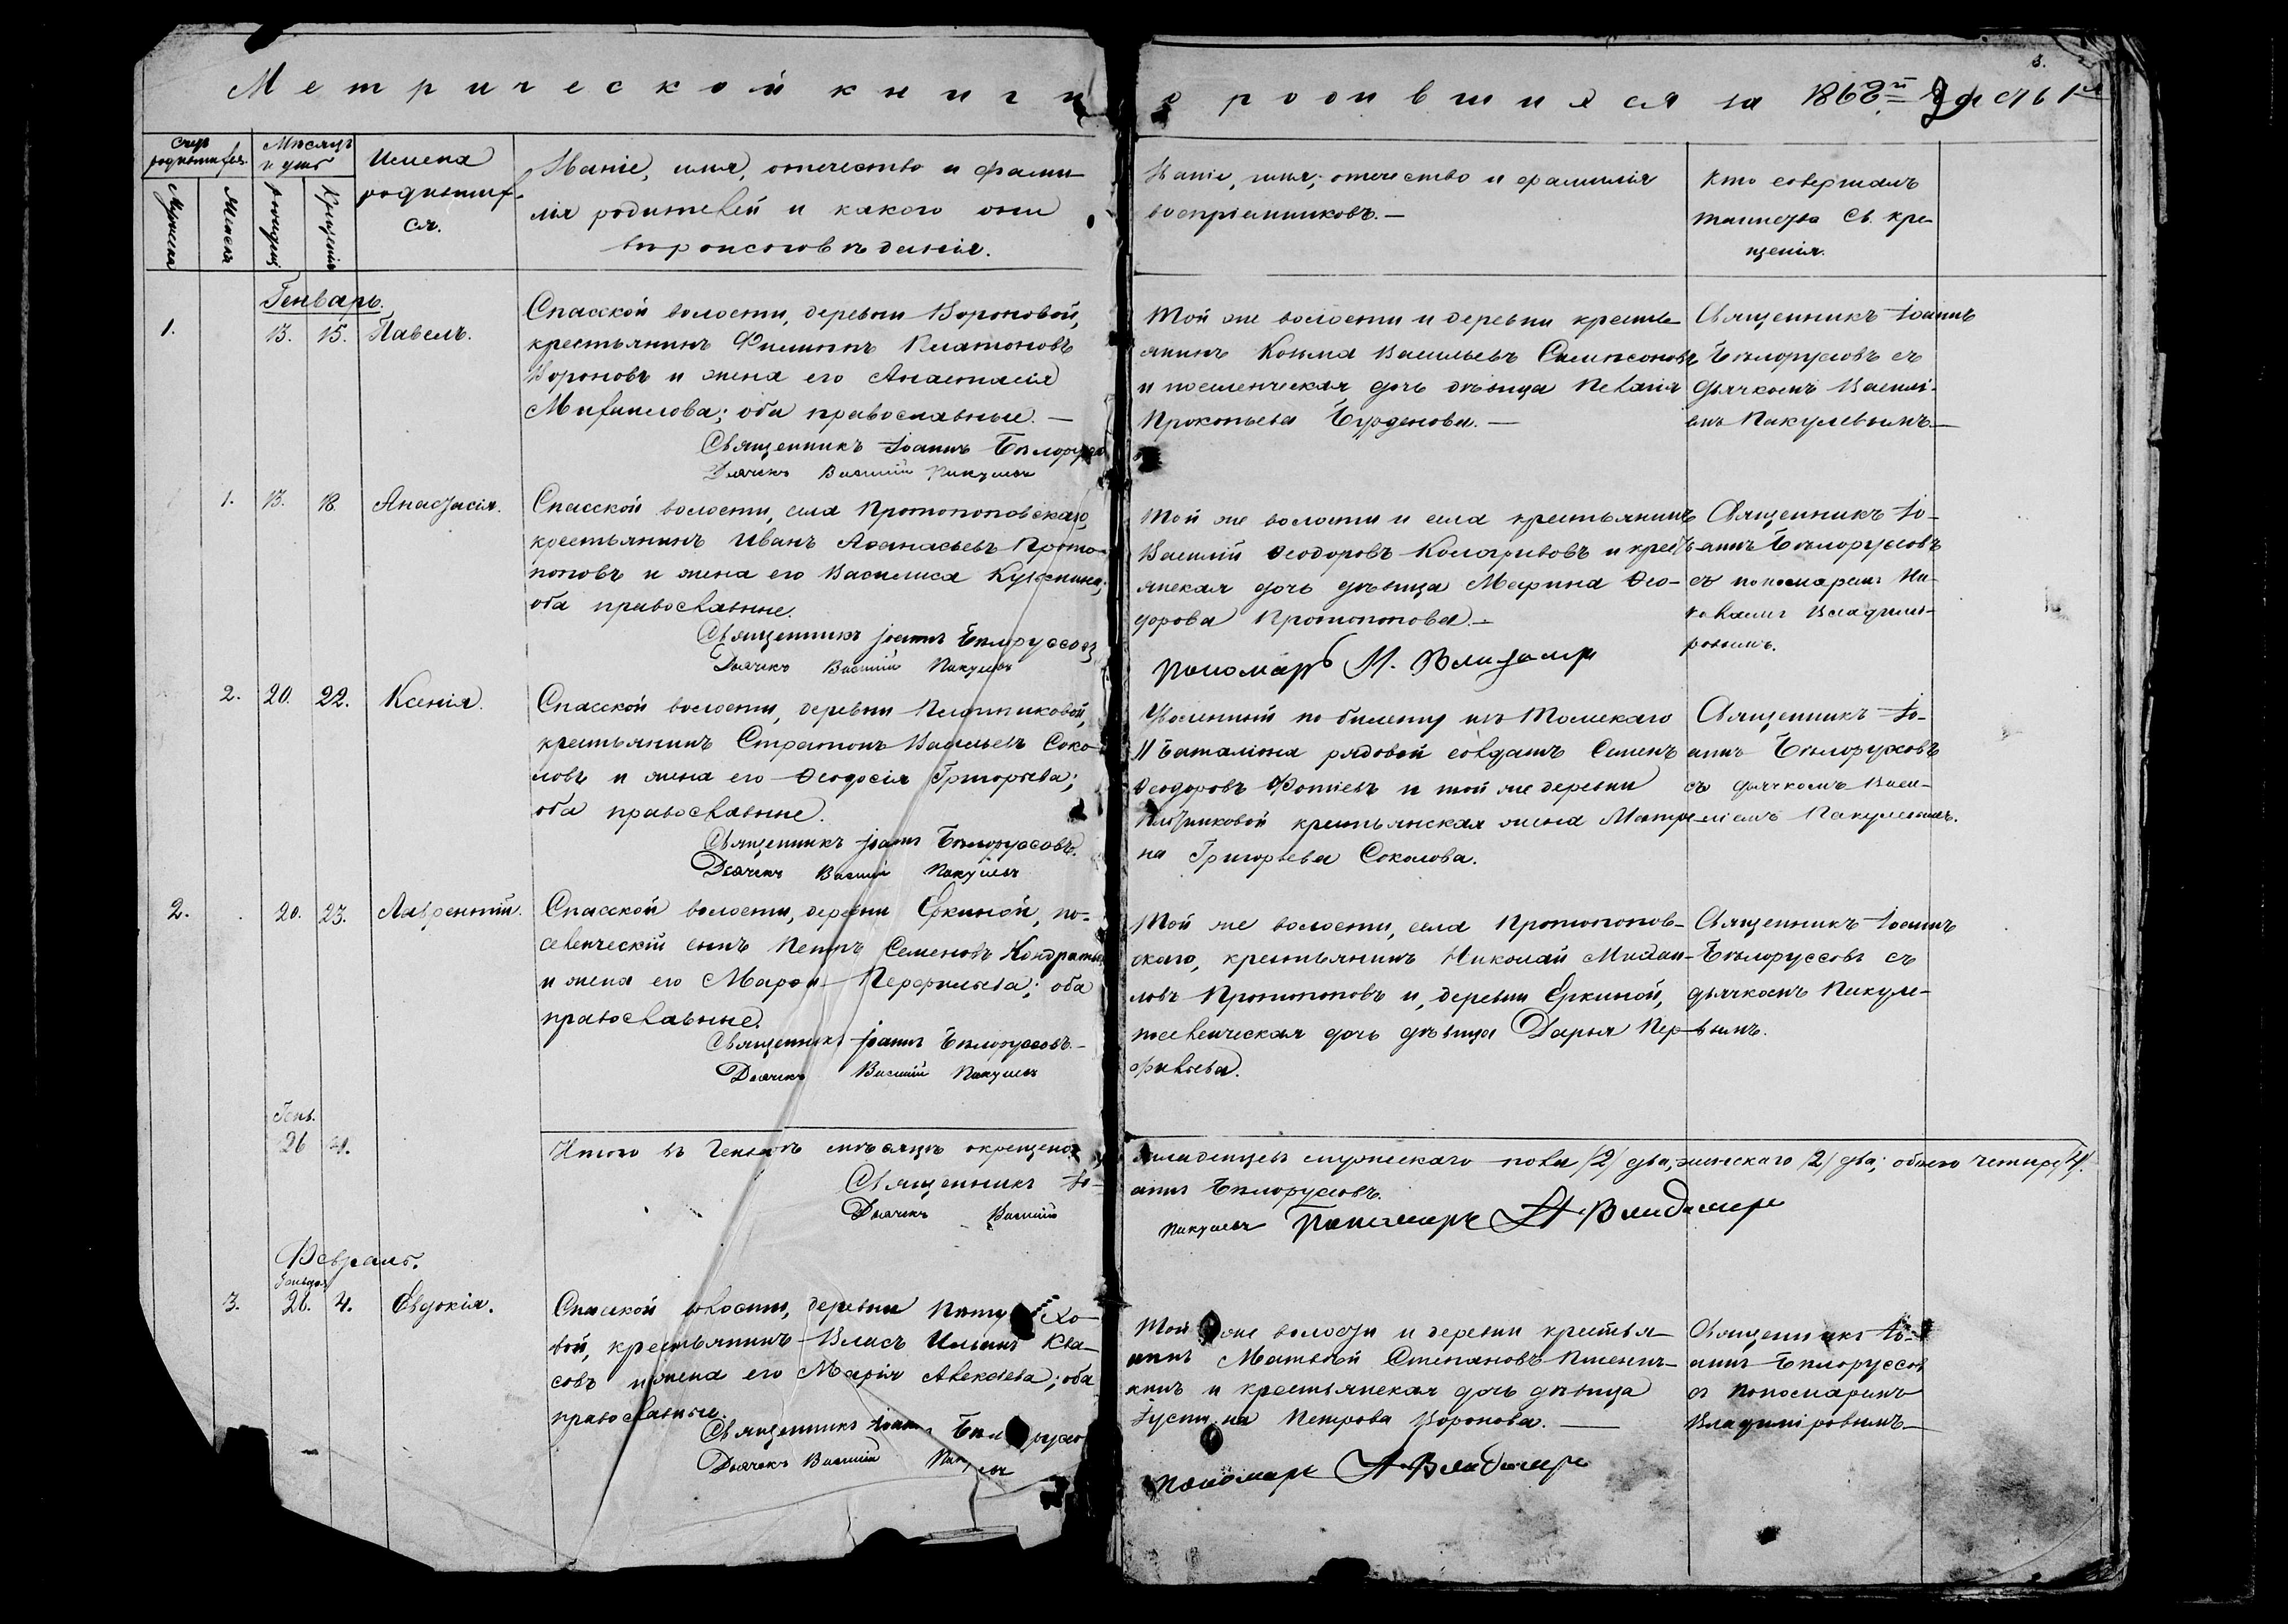 Метрической книги о родившихся за 1868й часть 1я
8.
Счетъ родившихся.
Мѣсяцъ и день
Имена родившихся.
Мужеска
Женска
Рожденія
Крещенія
Званіе, имя, отечество и фами-
лія родителей и какого они
вѣроисповѣданія.
Званіе, имя, отечество и фамилія
воспріемниковъ.—
Кто совершалъ
таинство Св. кре-
щенія.
Генварь.
1. 13. 15. Павелъ.
Спасской волости, деревни Вороновой,
крестьянинъ Филиппъ Платоновъ
Вороновъ и жена его Анастасія
Михаилова; оба православные.—
Священникъ Іоаннъ Бѣлоруссо
Дьячекъ Василій Пакулевъ
Той же волости и деревни кресть-
янинъ Козьма Васильевъ Самсоновъ
и поселенческая дочь дѣвица Пелагія
Прокопьева Бурденова.—
Священникъ Іоаннъ
Бѣлоруссовъ съ
дьячкомъ Васил-
емъ Пакулевымъ.—
1. 13. 18. Анастасія.
Спасской волости, села Протопоповскаго,
крестьянинъ Иванъ Аѳанасьевъ Прото-
поповъ и жена его Василиса Кузьмина;
оба православные.
Священникъ Іоаннъ Бѣлоруссовъ
Дьячекъ Василій Пакулевъ
Той же волости и села крестьянинъ
Василій Ѳеодоровъ Кологривовъ и кресть-
янская дочь дѣвица Марина Ѳео-
дорова Протопопова.—
Пономарь Н. Владимір
Священникъ Іо-
аннъ Бѣлоруссовъ
съ пономаремъ Ни-
колаемъ Владимі-
ровымъ.
2. 20. 22. Ксенія.
Спасской волости, деревни Плотниковой,
крестьянинъ Стратонъ Васильевъ Соко-
ловъ и жена его Ѳеодосія Григорьева;
оба православные.
Священникъ Іоаннъ Бѣлоруссовъ.
Дьячекъ Василій Пакулевъ
Уволенный по билету изъ Томскаго
баталіона рядовой солдатъ Семенъ
Ѳеодоровъ Фотіевъ и той же деревни
Плотниковой крестьянская жена Матре-
на Григорьева Соколова.
Священникъ Іо-
аннъ Бѣлоруссовъ
съ дьячкомъ Васи-
ліемъ Пакулевымъ.
2. 20. 23. Лаврентій.
Спасской волости, деревни Еркиной, по-
селенческій сынъ Петръ Семеновъ Кондратье
и жена его Марѳа Перфильева; оба
православные.
Священникъ Іоаннъ Бѣлоруссовъ.—
Дьячекъ Василій Пакулевъ
Той же волости, села Протопопов-
скаго, крестьянинъ Николай Михаи-
ловъ Протопоповъ и, деревни Еркиной,
поселенческая дочь дѣвица Дарья Пер-
фильева.
Священникъ Іоаннъ
Бѣлоруссовъ съ
дьячкомъ Пакуле-
вымъ.
Генв.
26 4.
Итого въ Генварѣ мѣсяцѣ окрещено младенцевъ мужескаго пола /2/ два, женскаго /2/ два; обоего четыре /4/.
Священникъ Іо-
аннъ Бѣлоруссовъ.
Дьячекъ Василій Пакулевъ Пономарь Н. Владимір
Февраль.
Генваря
3. 26. 4. Евдокія.
Спасской волости, деревни Пѣтухо-
вой, крестьянинъ Власъ Ильинъ Ква-
совъ и жена его Марія Алексѣева; оба
православные.
Священникъ Іоаннъ Бѣлоруссо
Дьячекъ Василій Пакулевъ
Той же волости и деревни крестья-
нинъ Матвѣй Степановъ Пшенич-
кинъ и крестьянская дочь дѣвица
Іустина Петрова Воронова.—
Пономарь Н. Владимір
Священникъ Іо-
аннъ Бѣлоруссов
съ пономаремъ
Владиміровымъ—